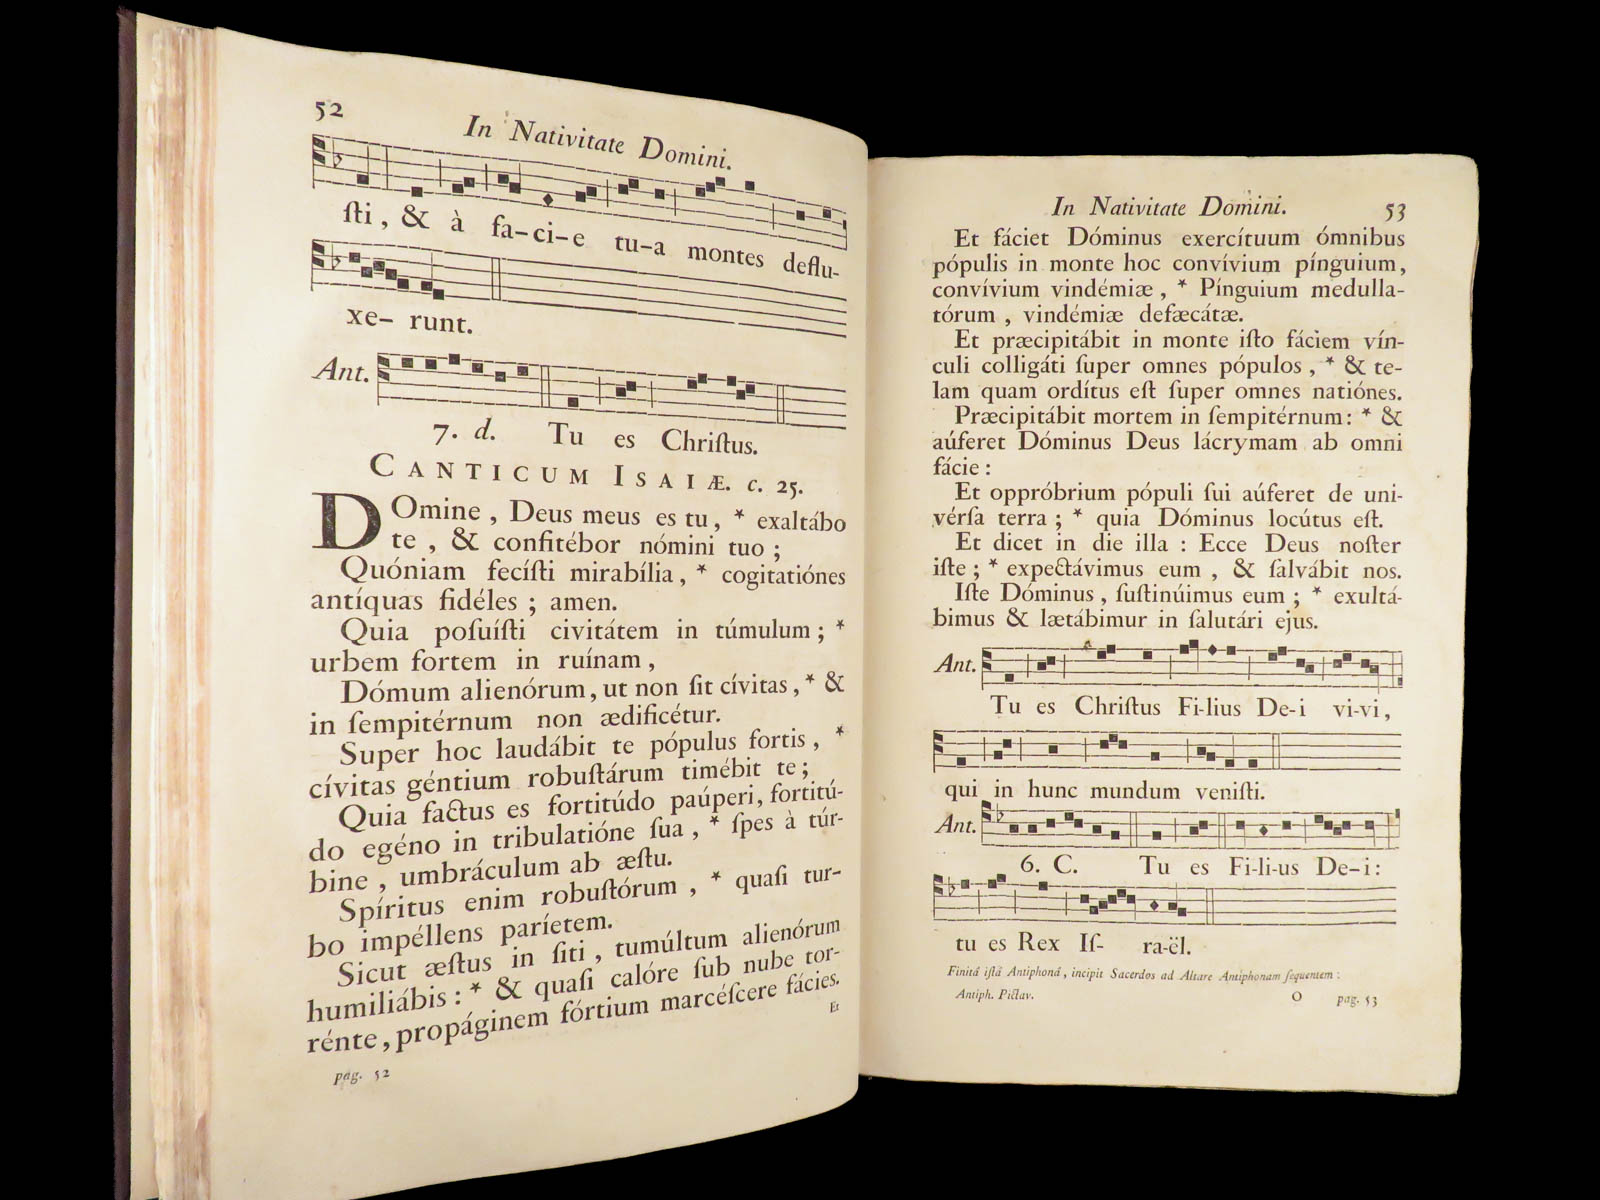 52
In Nativitate Domini.
ſti, & à fa-ci-e tu-a montes deflu-
xe- runt.
Ant.
7. d. Tu es Chriſtus.
CANTICUM ISAIÆ. c. 25.
DOmine, Deus meus es tu, * exaltábo
te, & confitébor nómini tuo;
Quóniam fecíſti mirabília, * cogitatiónes
antíquas fidéles; amen.
Quia poſuíſti civitátem in túmulum; *
urbem fortem in ruínam,
Dómum alienórum, ut non ſit cívitas, * &
in ſempitérnum non ædificétur.
Super hoc laudábit te pópulus fortis, *
cívitas géntium robuſtárum timébit te;
Quia factus es fortitúdo paúperi, fortitú-
do egéno in tribulatióne ſua, * ſpes à túr-
bine, umbráculum ab æſtu.
Spíritus enim robuſtórum, * quaſi tur-
bo impéllens paríetem.
Sicut æſtus in ſiti, tumúltum alienórum
humiliábis: * & quaſi calóre ſub nube tor-
rénte, propáginem fórtium marcéſcere fácies.
Et
pag. 52
In Nativitate Domini. 53
Et fáciet Dóminus exercítuum ómnibus
pópulis in monte hoc convívium pínguium,
convívium vindémiæ, * Pínguium medulla-
tórum, vindémiæ defæcátæ.
Et præcipitábit in monte iſto fáciem vín-
culi colligáti ſuper omnes pópulos, * & te-
lam quam ordítus eſt ſuper omnes natiónes.
Præcipitábit mortem in ſempitérnum: * &
aúferet Dóminus Deus lácrymam ab omni
fácie:
Et oppróbrium pópuli ſui aúferet de uni-
vérſa terra; * quia Dóminus locútus eſt.
Et dicet in die illa: Ecce Deus noſter
iſte; * expectávimus eum, & ſalvábit nos.
Iſte Dóminus, ſuſtinúimus eum; * exultá-
bimus & lætábimur in ſalutári ejus.
Ant.
Tu es Chriſtus Fi-lius De-i vi-vi,
qui in hunc mundum veniſti.
Ant.
6. C. Tu es Fi-li-us De-i:
tu es Rex Iſ- ra-ël.
Finitâ iſtâ Antiphonâ, incipit Sacerdos ad Altare Antiphonam ſequentem:
Antiph. Pictav. O pag. 53